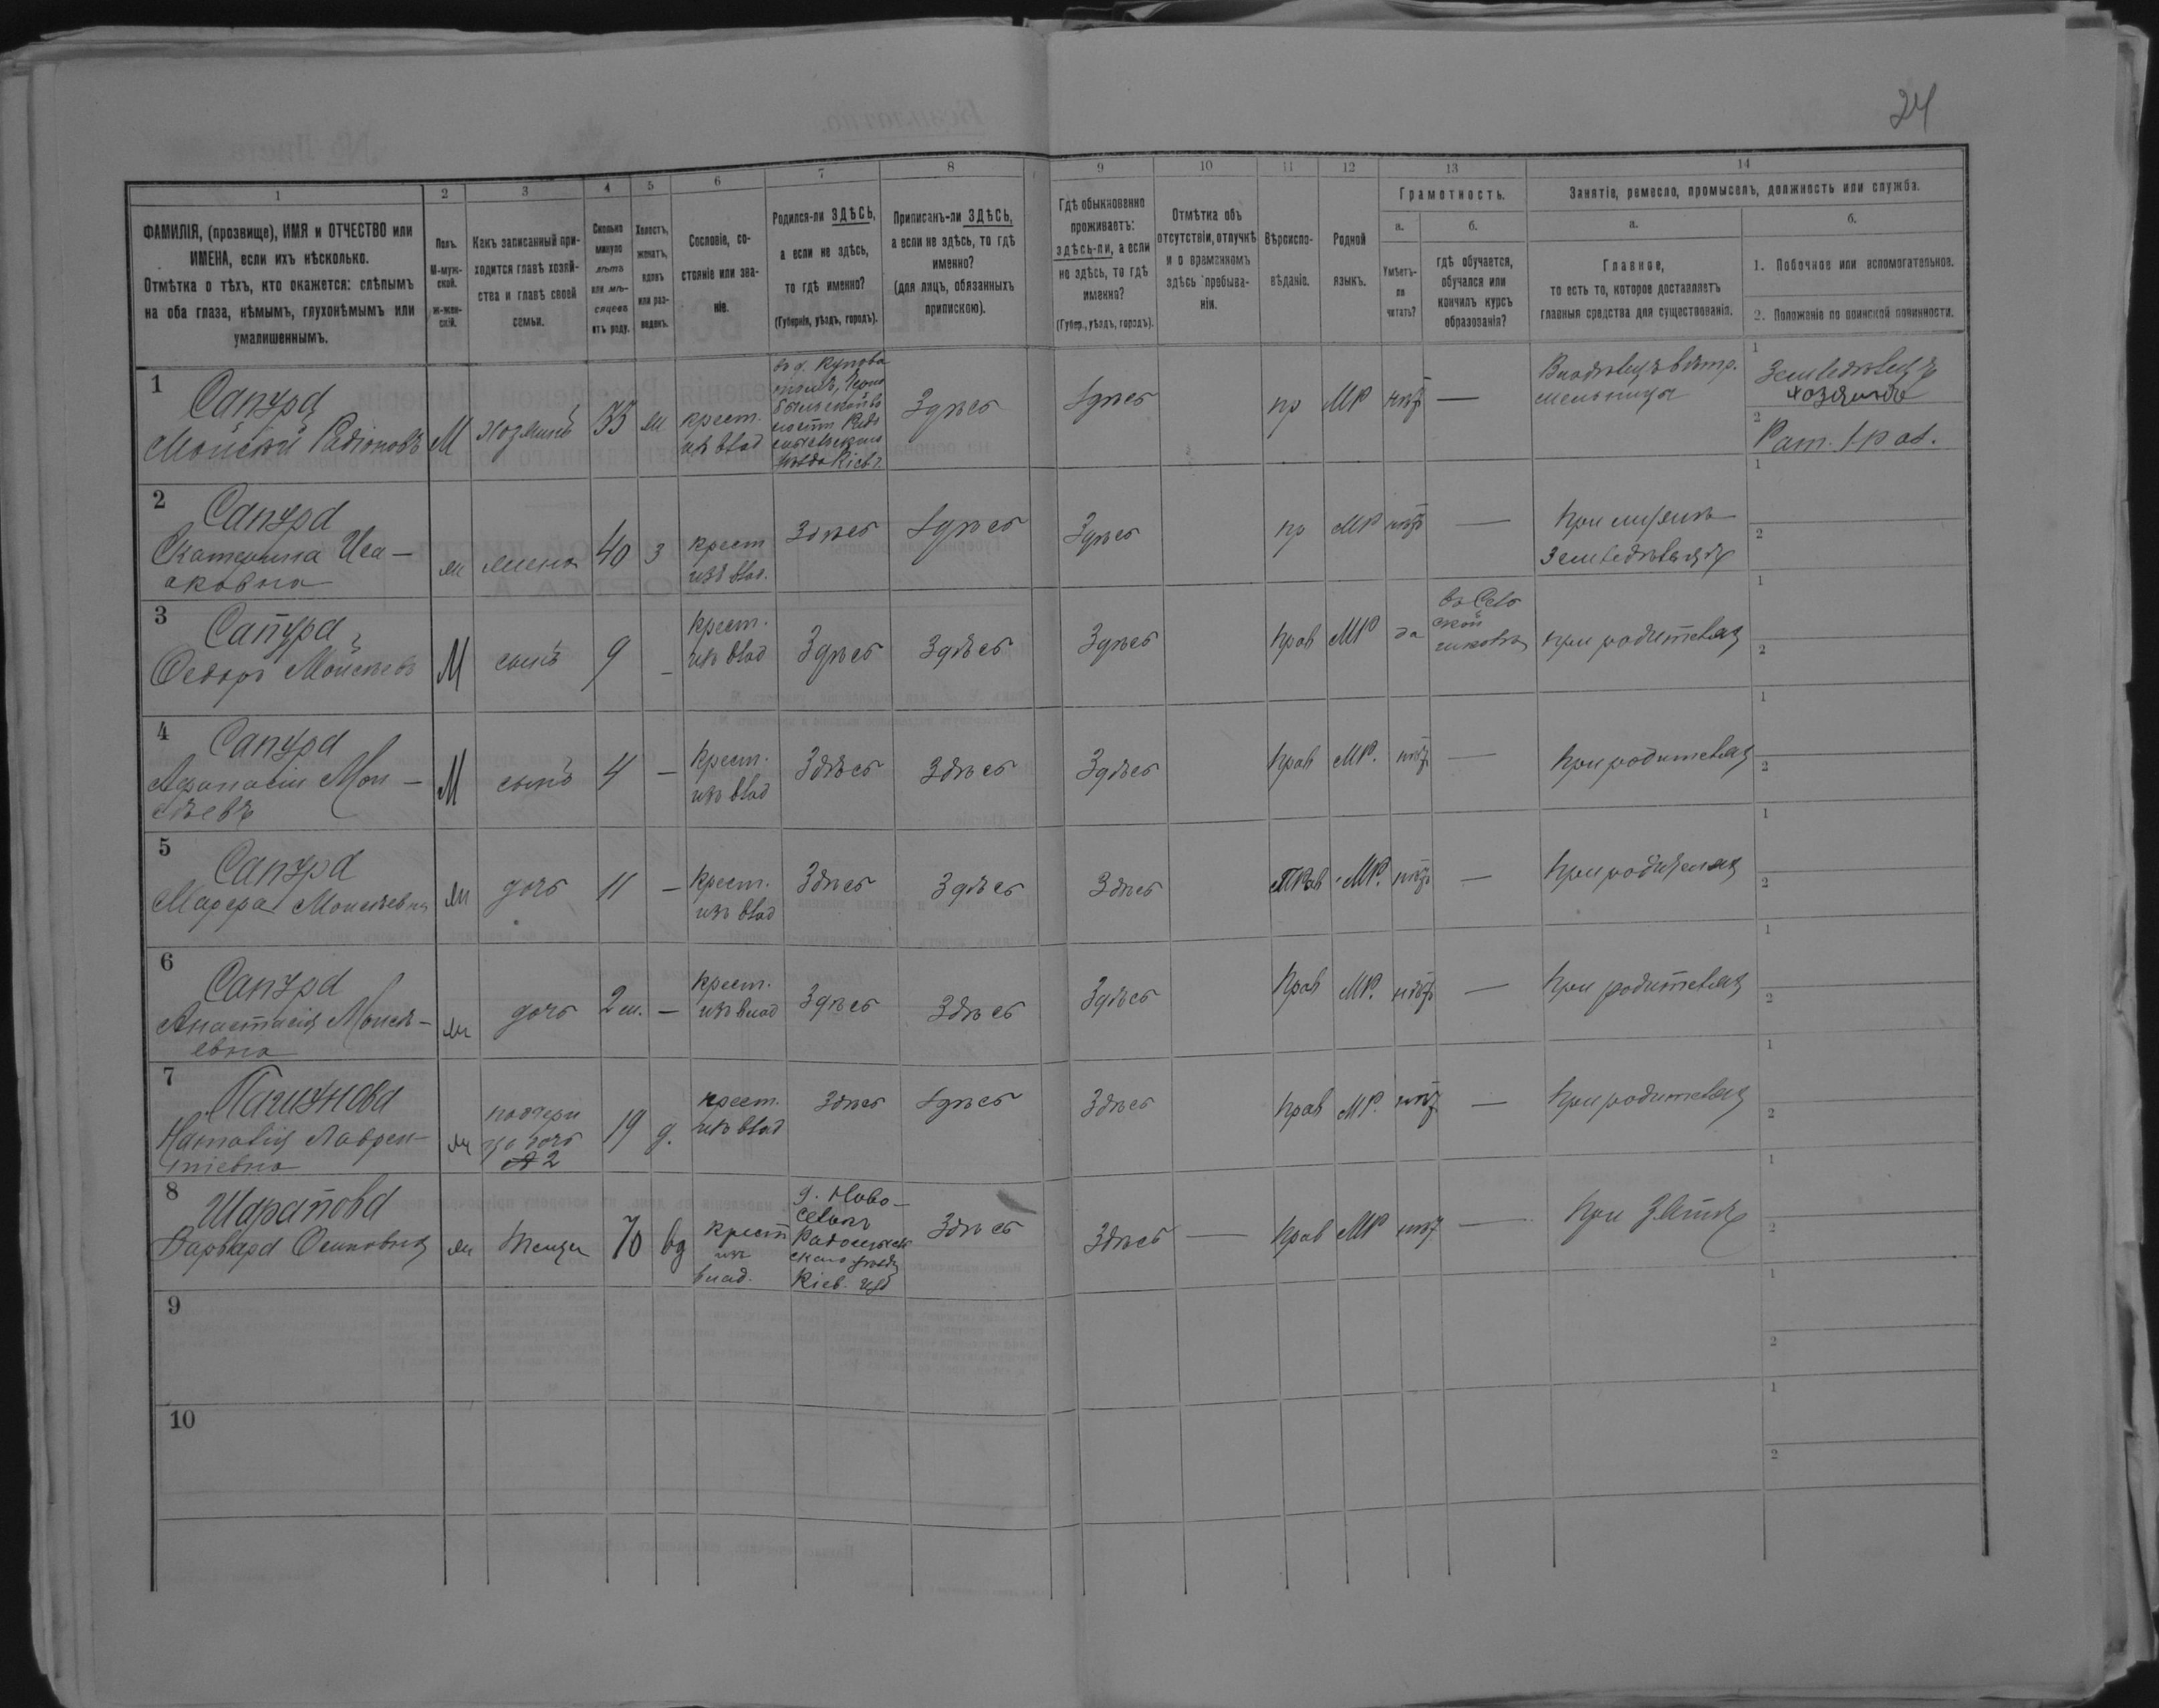 24
1 2 3 4 5 6 7 8 9 10 11 12 13 14
ФАМИЛІЯ, (прозвище), ИМЯ и ОТЧЕСТВО или
ИМЕНА, если ихъ нѣсколько.
Отмѣтка о тѣхъ, кто окажется: слѣпымъ
на оба глаза, нѣмымъ, глухонѣмымъ или
умалишеннымъ.
Полъ.
М-муж-
ской.
Ж-жен-
скій.
Какъ записанный при-
ходится главѣ хозяй-
ства и главѣ своей
семьи.
Сколько
минуло
лѣтъ
или мѣ-
сяцевъ
отъ роду.
Холостъ,
женатъ,
вдовъ
или раз-
веденъ.
Сословіе, со-
стояніе или зва-
ніе.
Родился-ли ЗДѢСЬ,
а если не здѣсь,
то гдѣ именно?
(Губернія, уѣздъ, городъ).
Приписанъ-ли ЗДѢСЬ,
а если не здѣсь, то гдѣ
именно?
(для лицъ, обязанныхъ
припискою).
Гдѣ обыкновенно
проживаетъ:
здѣсь-ли, а если
не здѣсь, то гдѣ
именно?
(Губер., уѣздъ, городъ).
Отмѣтка объ
отсутствіи, отлучкѣ
и о временномъ
здѣсь пребыва-
ніи.
Вѣроиспо-
вѣданіе.
Родной
языкъ.
Грамотность.
а.
Умѣетъ-
ли
читать?
б.
гдѣ обучается,
обучался или
кончилъ курсъ
образованія?
Занятіе, ремесло, промыселъ, должность или служба.
а.
Главное,
то есть то, которое доставляетъ
главныя средства для существованія.
б.
1. Побочное или вспомогательное.
2. Положеніе по воинской повинности.
1
Сапура
Мойсей Радіоновъ
М
хозяинъ
ж
крест.
изъ влад
Здѣсь
Здѣсь
пр
МР
нѣтъ
—
мельницы
1
Земледѣлецъ
хозяинъ
2
Рат. 1 раз.
2
Сапура
Екатерина Иса-
аковна
ж
жена
40
з
крест
изъ влад.
Здѣсь
Здѣсь
Здѣсь
пр
МР
нѣтъ
—
При мужѣ
земледѣлецъ
1
2
3
Сапура
Федоръ Мойсѣевъ
М
сынъ
9
-
крест.
изъ влад
Здѣсь
Здѣсь
Здѣсь
Прав
МР
да
въ Сель
ской
школѣ
при родителях
1
2
4
Сапура
Афанасій Мои-
сѣевъ
М
сынъ
4
—
крест.
изъ влад
Здѣсь
Здѣсь
Здѣсь
Прав
МР.
нѣтъ
—
При родителях
1
2
5
Сапура
Моисѣевна
ж
дочь
11
—
крест.
изъ влад
Здѣсь
Здѣсь
Здѣсь
Прав
МР.
нѣтъ
—
При родителях
1
2
6
Сапура
Анастасія Моисѣ-
евна
ж
дочь
2 м.
—
крест.
изъ влад
Здѣсь
Здѣсь
Здѣсь
Прав
МР.
нѣтъ
—
При родителях
1
2
7
Наталія Лаврен-
тіевна
ж
19
д.
крест.
изъ влад
Здѣсь
Здѣсь
Здѣсь
Прав
МР.
нѣтъ
—
При родителях
1
2
8
Шарапова
Варвара Осиповна
ж
Теща
70
вд
крест
изъ
влад.
д. Ново-
селкъ
Радомысль
скаго уѣзда
Кіев. губ
Здѣсь
Здѣсь
—
Прав
МР
нѣт
—
При Зятѣ
1
2
9
1
2
10
1
2